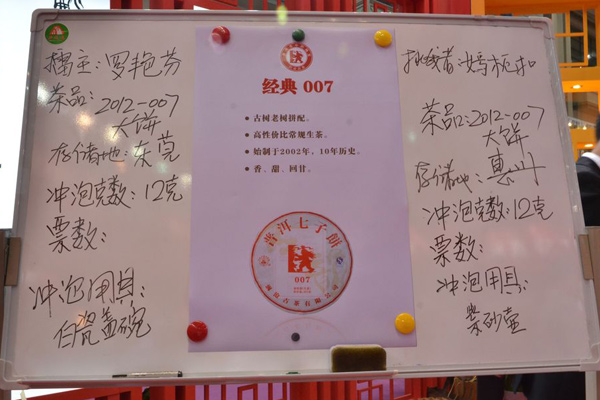 擂主:罗艳芬
茶品:2012-007
大饼
存储地:东莞
冲泡克数:12克
票数:
冲泡用具:
白瓷盖碗
经典 007
古树老树拼配。
高性价比常规生茶。
始制于2002年，10年历史。
香、甜、回甘。
普洱七子饼
007
挑战者:
茶品:2012-007
大饼
存储地:惠州
冲泡克数:12克
票数:
冲泡用具:
紫砂壶